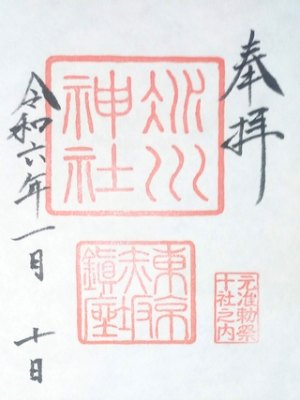 奉拝
氷川
神社
東京
赤坂
鎮座
元准勅祭
十社之内
令和六年一月十日